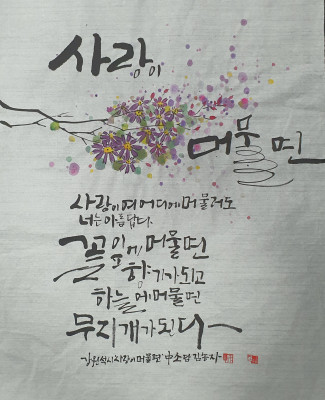 사랑이
머물면
사랑이여 어디에 머물러도
너는 아름답다.
꽃잎에 머물면
향기가 되고
하늘에 머물면
무지개가 된다
강원석 시 사랑이 머물면 中 소담 김농자